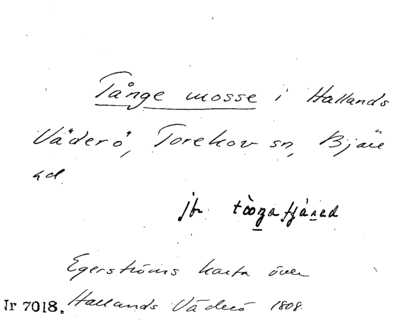 Tånge mosse i Hallands
Väderö, Torekov sn, Bjäre
hd.
jfr
Egerströms karta över
Ir 7018. Hallands Väderö 1808.